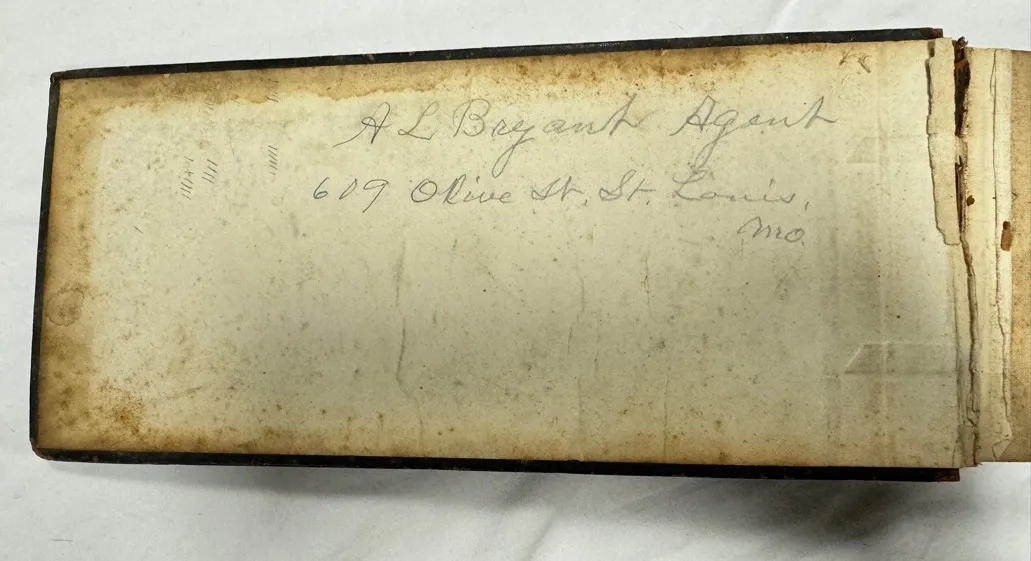 A L Bryant Agent
609 Olive St. St. Louis,
Mo.